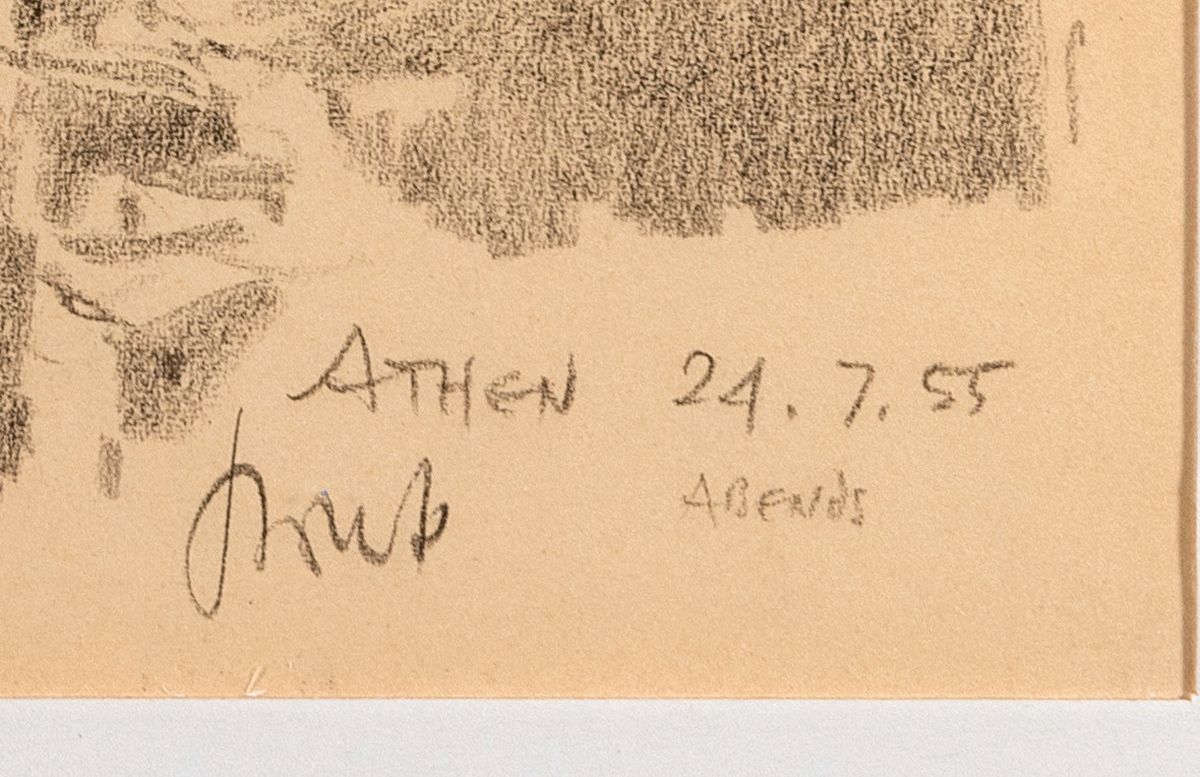 ATHEN 24.7.55
ABENDS